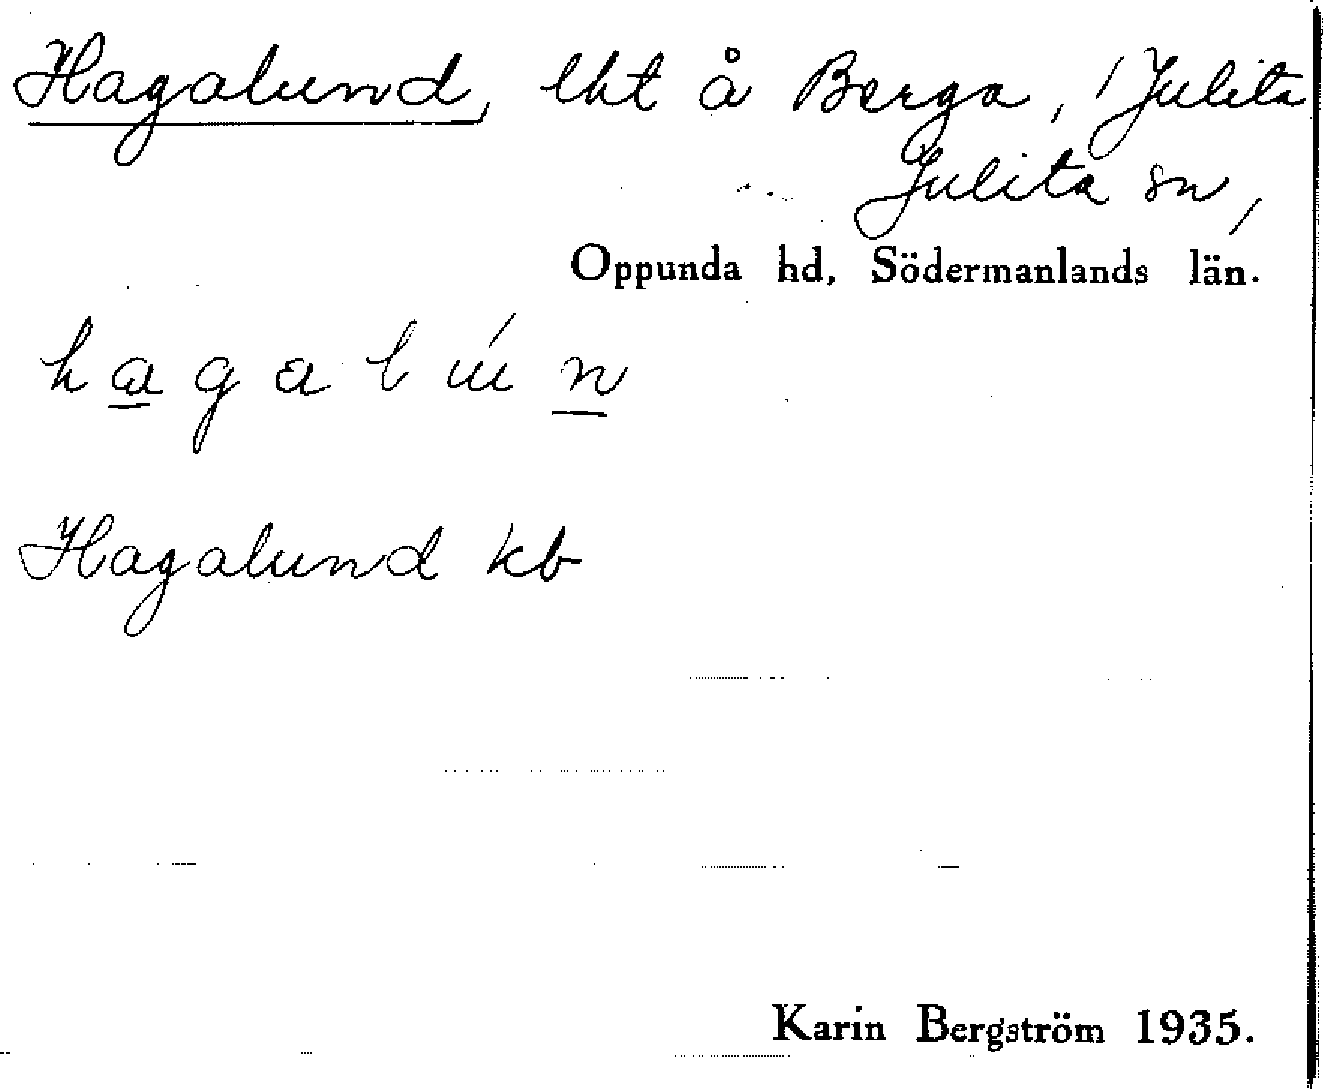 Hagalund, lht å Berga, Julita
Julita sn,
Oppunda hd, Södermanlands län.
hagalún
Hagalund kb
Karin Bergström 1935.